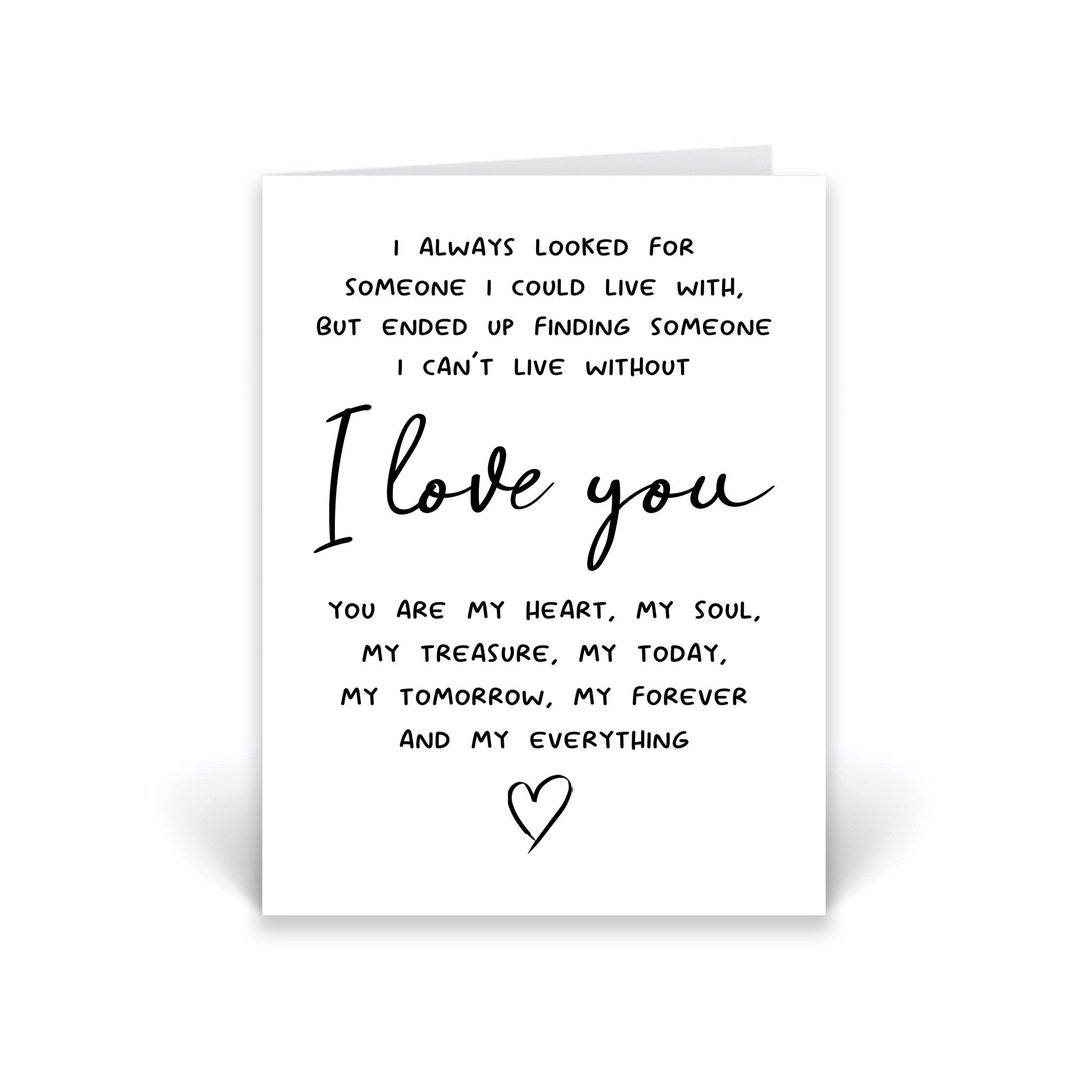 I ALWAYS LOOKED FOR
SOMEONE I COULD LIVE WITH,
BUT ENDED UP FINDING SOMEONE
I CAN'T LIVE WITHOUT
I love you
YOU ARE MY HEART, MY SOUL,
MY TREASURE, MY TODAY,
MY TOMORROW, MY FOREVER
AND MY EVERYTHING